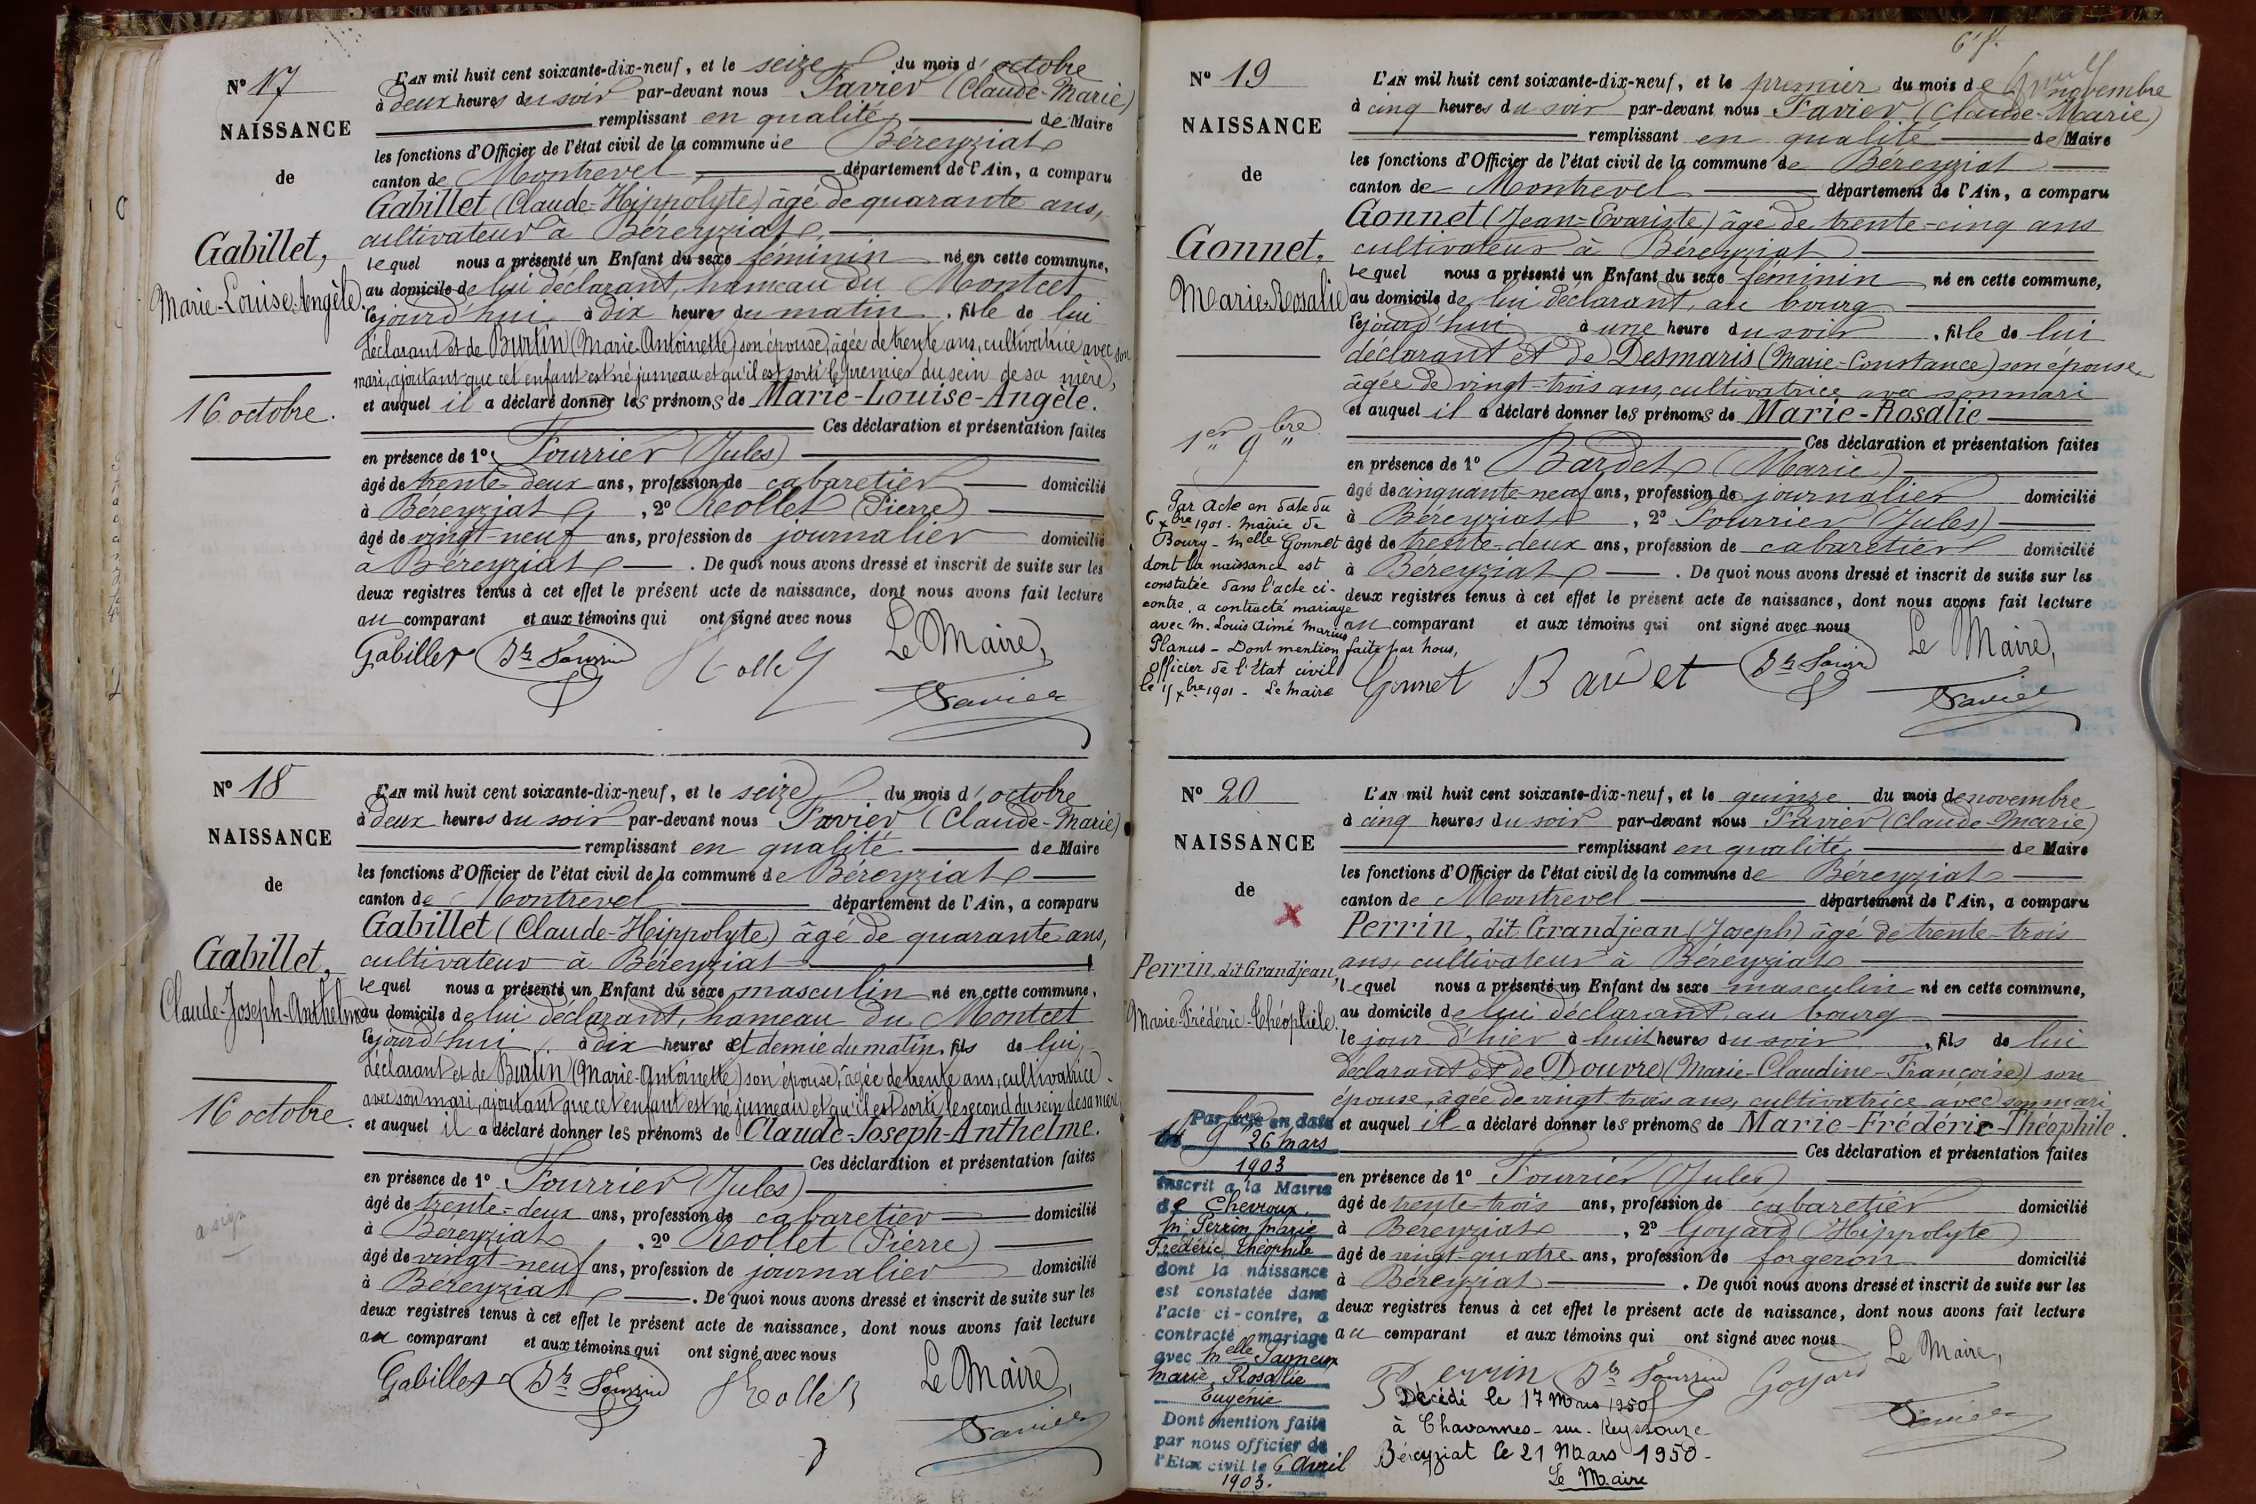 N° 17
NAISSANCE
de
Gabillet,
Marie-Louise-Angèle.
16 octobre.
L'AN mil huit cent soixante-dix-neuf, et le seize du mois d'octobre
à deux heures du soir par-devant nous Favier (Claude-Marie)
remplissant en qualité de Maire
les fonctions d'Officier de l'état civil de la commune de Béreyziat
canton de Montrevel département de l'Ain, a comparu
Gabillet (Claude-Hippolyte) âgé de quarante ans,
cultivateur à Béreyziat
lequel nous a présenté un Enfant du sexe féminin né en cette commune,
au domicile de lui déclarant, hameau du Montcet
cejourd'hui à dix heures du matin, fille de lui
déclarant et de Burtin (Marie-Antoinette) son épouse, âgée de trente ans, cultivatrice avec son
mari, ajoutant que cet enfant est né jumeau et qu'il est sorti le premier du sein de sa mère,
et auquel il a déclaré donner les prénoms de Marie-Louise-Angèle.
Ces déclaration et présentation faites
en présence de 1° Fourrier (Jules)
âgé de trente-deux ans, profession de cabaretier domicilié
à Béreyziat, 2° Rollet (Pierre)
âgé de vingt-neuf ans, profession de journalier domicilié
à Béreyziat. De quoi nous avons dressé et inscrit de suite sur les
deux registres tenus à cet effet le présent acte de naissance, dont nous avons fait lecture
au comparant et aux témoins qui ont signé avec nous
Le Maire,
Gabillet Fourrier Rollet
Favier
N° 18
NAISSANCE
de
Gabillet,
Claude-Joseph-Anthelme
16 octobre.
a sign
L'AN mil huit cent soixante-dix-neuf, et le seize du mois d'octobre
à deux heures du soir par-devant nous Favier (Claude-Marie)
remplissant en qualité de Maire
les fonctions d'Officier de l'état civil de la commune de Béreyziat
canton de Montrevel département de l'Ain, a comparu
Gabillet (Claude-Hippolyte) âgé de quarante ans,
cultivateur à Béreyziat
lequel nous a présenté un Enfant du sexe masculin né en cette commune,
au domicile de lui déclarant, hameau du Montcet
cejourd'hui, à dix heures et demie du matin, fils de lui,
déclarant et de Burtin (Marie-Antoinette) son épouse, âgée de trente ans, cultivatrice
avec son mari, ajoutant que cet enfant est né jumeau et qu'il est sorti le second du sein de sa mère,
et auquel il a déclaré donner les prénoms de Claude-Joseph-Anthelme.
Ces déclaration et présentation faites
en présence de 1° Fourrier (Jules)
âgé de trente-deux ans, profession de cabaretier domicilié
à Béreyziat, 2° Rollet (Pierre)
âgé de vingt-neuf ans, profession de journalier domicilié
à Béreyziat. De quoi nous avons dressé et inscrit de suite sur les
deux registres tenus à cet effet le présent acte de naissance, dont nous avons fait lecture
au comparant et aux témoins qui ont signé avec nous
Le Maire,
Gabillet Fourrier Rollet
Favier
N° 19
NAISSANCE
de
Gonnet,
Marie-Rosalie
1er 9bre
Par acte en date du
6 xbre 1901 - mairie de
Bourg - Melle Gonnet
dont la naissance est
constatée dans l'acte ci-
contre, a contracté mariage
avec M. Louis Aimé Marius
Planus - Dont mention faite par nous,
officier de l'Etat civil
le 15 xbre 1901 - Le Maire
L'AN mil huit cent soixante-dix-neuf, et le premier du mois de novembre
à cinq heures du soir par-devant nous Favier (Claude-Marie)
remplissant en qualité de Maire
les fonctions d'Officier de l'état civil de la commune de Béreyziat
canton de Montrevel département de l'Ain, a comparu
Gonnet (Jean-Evariste) âgé de trente-cinq ans
cultivateur à Béreyziat
lequel nous a présenté un Enfant du sexe féminin né en cette commune,
au domicile de lui déclarant, au bourg
cejourd'hui à une heure du soir, fille de lui
déclarant et de Desmaris (Marie-Constance) son épouse
âgée de vingt-trois ans, cultivatrice avec son mari
et auquel il a déclaré donner les prénoms de Marie-Rosalie
Ces déclaration et présentation faites
en présence de 1° Bardet (Marie)
âgé de cinquante-neuf ans, profession de journalier domicilié
à Béreyziat, 2° Fourrier (Jules)
âgé de trente-deux ans, profession de cabaretier domicilié
à Béreyziat. De quoi nous avons dressé et inscrit de suite sur les
deux registres tenus à cet effet le présent acte de naissance, dont nous avons fait lecture
au comparant et aux témoins qui ont signé avec nous
Le Maire,
Gonnet Bardet Fourrier
Favier
N° 20
NAISSANCE
de
Perrin, dit Grandjean,
Marie-Frédéric-Théophile.
Par acte en date
du 26 mars
1903
inscrit à la Mairie
de Chevroux,
Mr Perrin Marie
Frédéric Théophile
dont la naissance
est constatée dans
l'acte ci-contre, a
contracté mariage
avec Melle Pagneux
Marie Rosalie
Eugénie
Dont mention faite
par nous officier de
l'Etat civil le 6 Avril
1903.
L'AN mil huit cent soixante-dix-neuf, et le quinze du mois de novembre
à cinq heures du soir par-devant nous Favier (Claude-Marie)
remplissant en qualité de Maire
les fonctions d'Officier de l'état civil de la commune de Béreyziat
canton de Montrevel département de l'Ain, a comparu
Perrin, dit Grandjean (Joseph) âgé de trente-trois
ans, cultivateur à Béreyziat
lequel nous a présenté un Enfant du sexe masculin né en cette commune,
au domicile de lui déclarant, au bourg
le jour d'hier à huit heures du soir, fils de lui
déclarant et de Douvre (Marie-Claudine-Françoise) son
épouse, âgée de vingt-trois ans, cultivatrice avec son mari
et auquel il a déclaré donner les prénoms de Marie-Frédéric-Théophile.
Ces déclaration et présentation faites
en présence de 1° Fourrier (Jules)
âgé de trente-trois ans, profession de cabaretier domicilié
à Béreyziat, 2° Goyard (Hippolyte)
âgé de vingt-quatre ans, profession de forgeron domicilié
à Béreyziat. De quoi nous avons dressé et inscrit de suite sur les
deux registres tenus à cet effet le présent acte de naissance, dont nous avons fait lecture
au comparant et aux témoins qui ont signé avec nous
Le Maire,
Perrin Fourrier Goyard
Favier
Décédé le 17 Mars 1950
à Chavannes-sur-Reyssouze
Béreyziat le 21 Mars 1950.
Le Maire